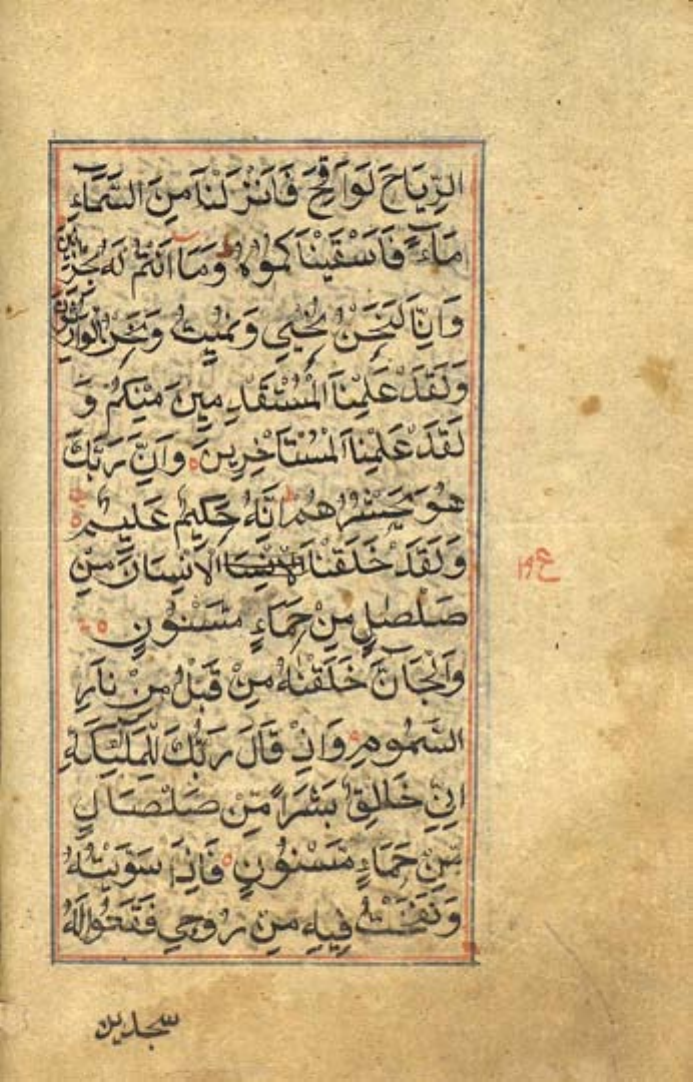 الرِّيَاحَ لَوَاقِحَ فَاَنْزَلْنَا مِنَ السَّمَآءِ
مَآءً فَاَسْقَيْنَاكُمُوْهُ وَمَا اَنْتُمْ لَهُ بِخَازِنِيْنَ
وَاِنَّا لَنَحْنُ نُحْيِي وَنُمِيْتُ وَنَحْنُ الْوَارِثُوْنَ
وَلَقَدْ عَلِمْنَا الْمُسْتَقْدِمِيْنَ مِنْكُمْ وَ
لَقَدْ عَلِمْنَا الْمُسْتَاْخِرِيْنَ وَاِنَّ رَبَّكَ
هُوَ يَحْشُرُهُمْ اِنَّهُ حَكِيْمٌ عَلِيْمٌ
وَلَقَدْ خَلَقْنَا الْاِنْسَانَ مِنْ
صَلْصَلٍ مِنْ حَمَاءٍ مَسْنُوْنٍ
وَالْجَآنَّ خَلَقْنٰهُ مِنْ قَبْلُ مِنْ نَارِ
السَّمُوْمِ وَاِذْ قَالَ رَبُّكَ لِلْمَلٰٓئِكَةِ
اِنِّيْ خَالِقٌ بَشَرًا مِّنْ صَلْصَالٍ
مِّنْ حَمَاءٍ مَسْنُوْنٍ فَاِذَا سَوَّيْتُهُ
وَنَفَخْتُ فِيْهِ مِنْ رُوْحِيْ فَقَعُوْا لَهُ
سجدين